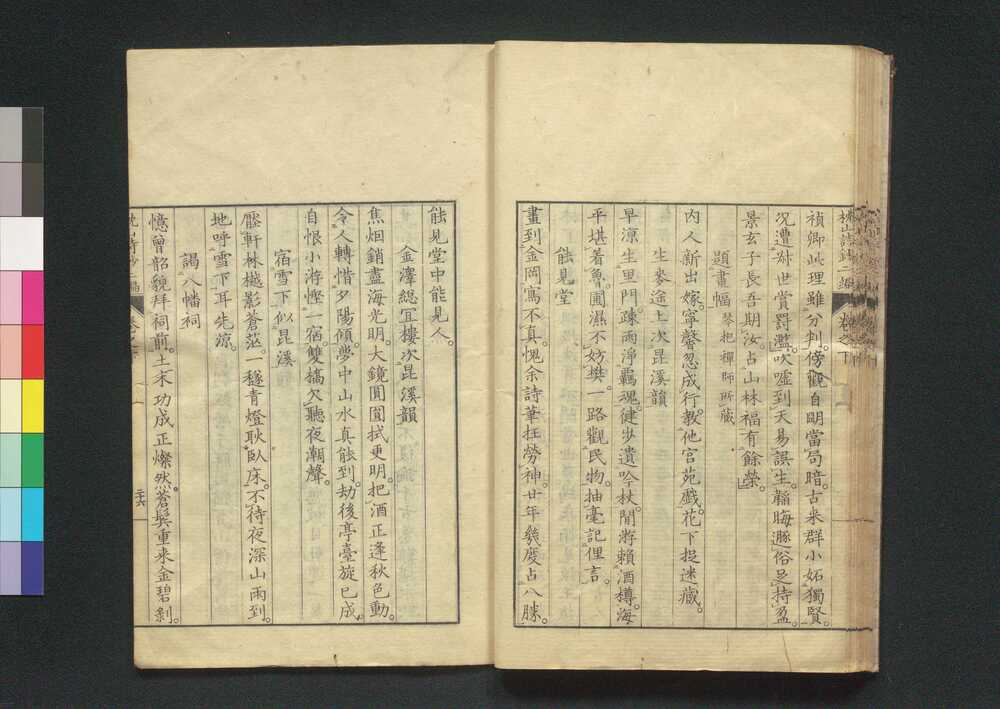 禎卿此理雖分判。傍觀自明當局暗。古来群小妬獨賢。
况遭对世賞罰濫。吹嘘到天易誤生。韜晦遯俗足持盈。
景玄子長吾期汝。占山林福有餘榮。
題畫幅 琴把禪師所藏
内人新出嫁。寧馨忽成行。教他宮苑戲。花下捉迷藏。
生麥途上次昆溪韻
早涼生里門。疎雨淨羈魂。健步遺吟杖。閒游賴酒樽。海
平堪着魯。圃濕不妨樊。一路觀民物。抽毫記俚言。
能見堂
畫到金岡寫不真。愧余詩筆枉勞神。廿年幾度占八勝。
能見堂中能見人。
金澤総宜樓次昆溪韻
焦烟銷盡海光明。大鏡圓圓拭更明。把酒正逢秋色動。
令人轉惜夕陽傾。夢中山水真能到。劫後亭臺旋已成。
自恨小游慳一宿。雙橋欠聽夜潮聲。
宿雪下似昆溪
壓軒林樾影蒼茫。一穟青燈耿臥床。不待夜深山雨到。
地呼雪下耳先涼。
謁八幡祠
憶曾韶貌拜祠前。土木功成正燦然。蒼鬓重来金碧剝。